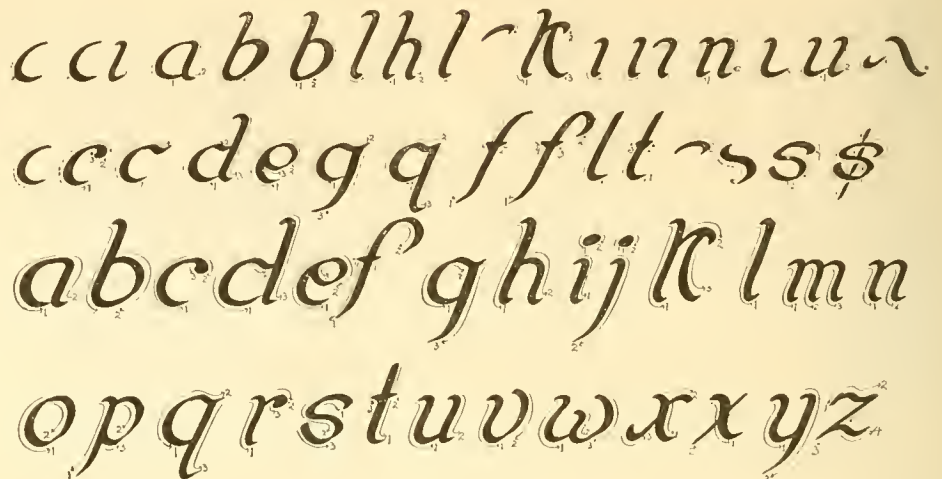 c cı a b b l h l K ı ın n ı u
c c c d e g q f f l t s s $
a b c d e f g h i j K l m n
o p q r s t u v w x x y z